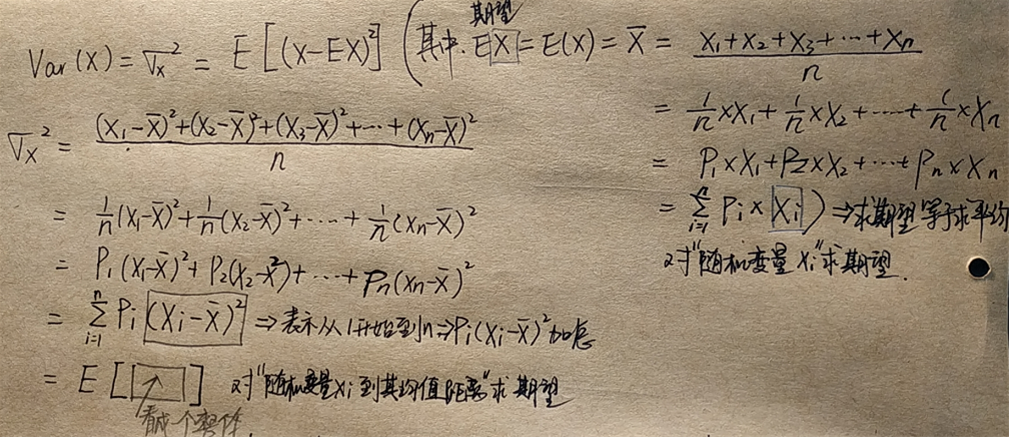 Var(X) = σx² = E[(X-EX)²] (其中. EX = E(X) = X̄ = (X₁+X₂+X₃+⋯+Xn)/n
期望
= 1/n×X₁ + 1/n×X₂ + ⋯⋯ + 1/n×Xn
= P₁×X₁+P₂×X₂+⋯⋯+Pn×Xn
= Σᵢ₌₁ⁿ Pi×Xi) ⇒ 求期望等于求平均
对"随机变量Xi"求期望.
σx² = ((X₁-X̄)²+(X₂-X̄)²+(X₃-X̄)²+⋯+(Xn-X̄)²)/n
= 1/n(X₁-X̄)²+1/n(X₂-X̄)²+⋯⋯+1/n(Xn-X̄)²
= P₁(X₁-X̄)²+P₂(X₂-X̄²)+⋯⋯+Pn(Xn-X̄)²
= Σᵢ₌₁ⁿ Pi(Xi-X̄)² ⇒ 表示从1开始到n ⇒ Pi(Xi-X̄)²加总
= E[□] 对"随机变量Xi到其均值距离"求期望
看成一个整体